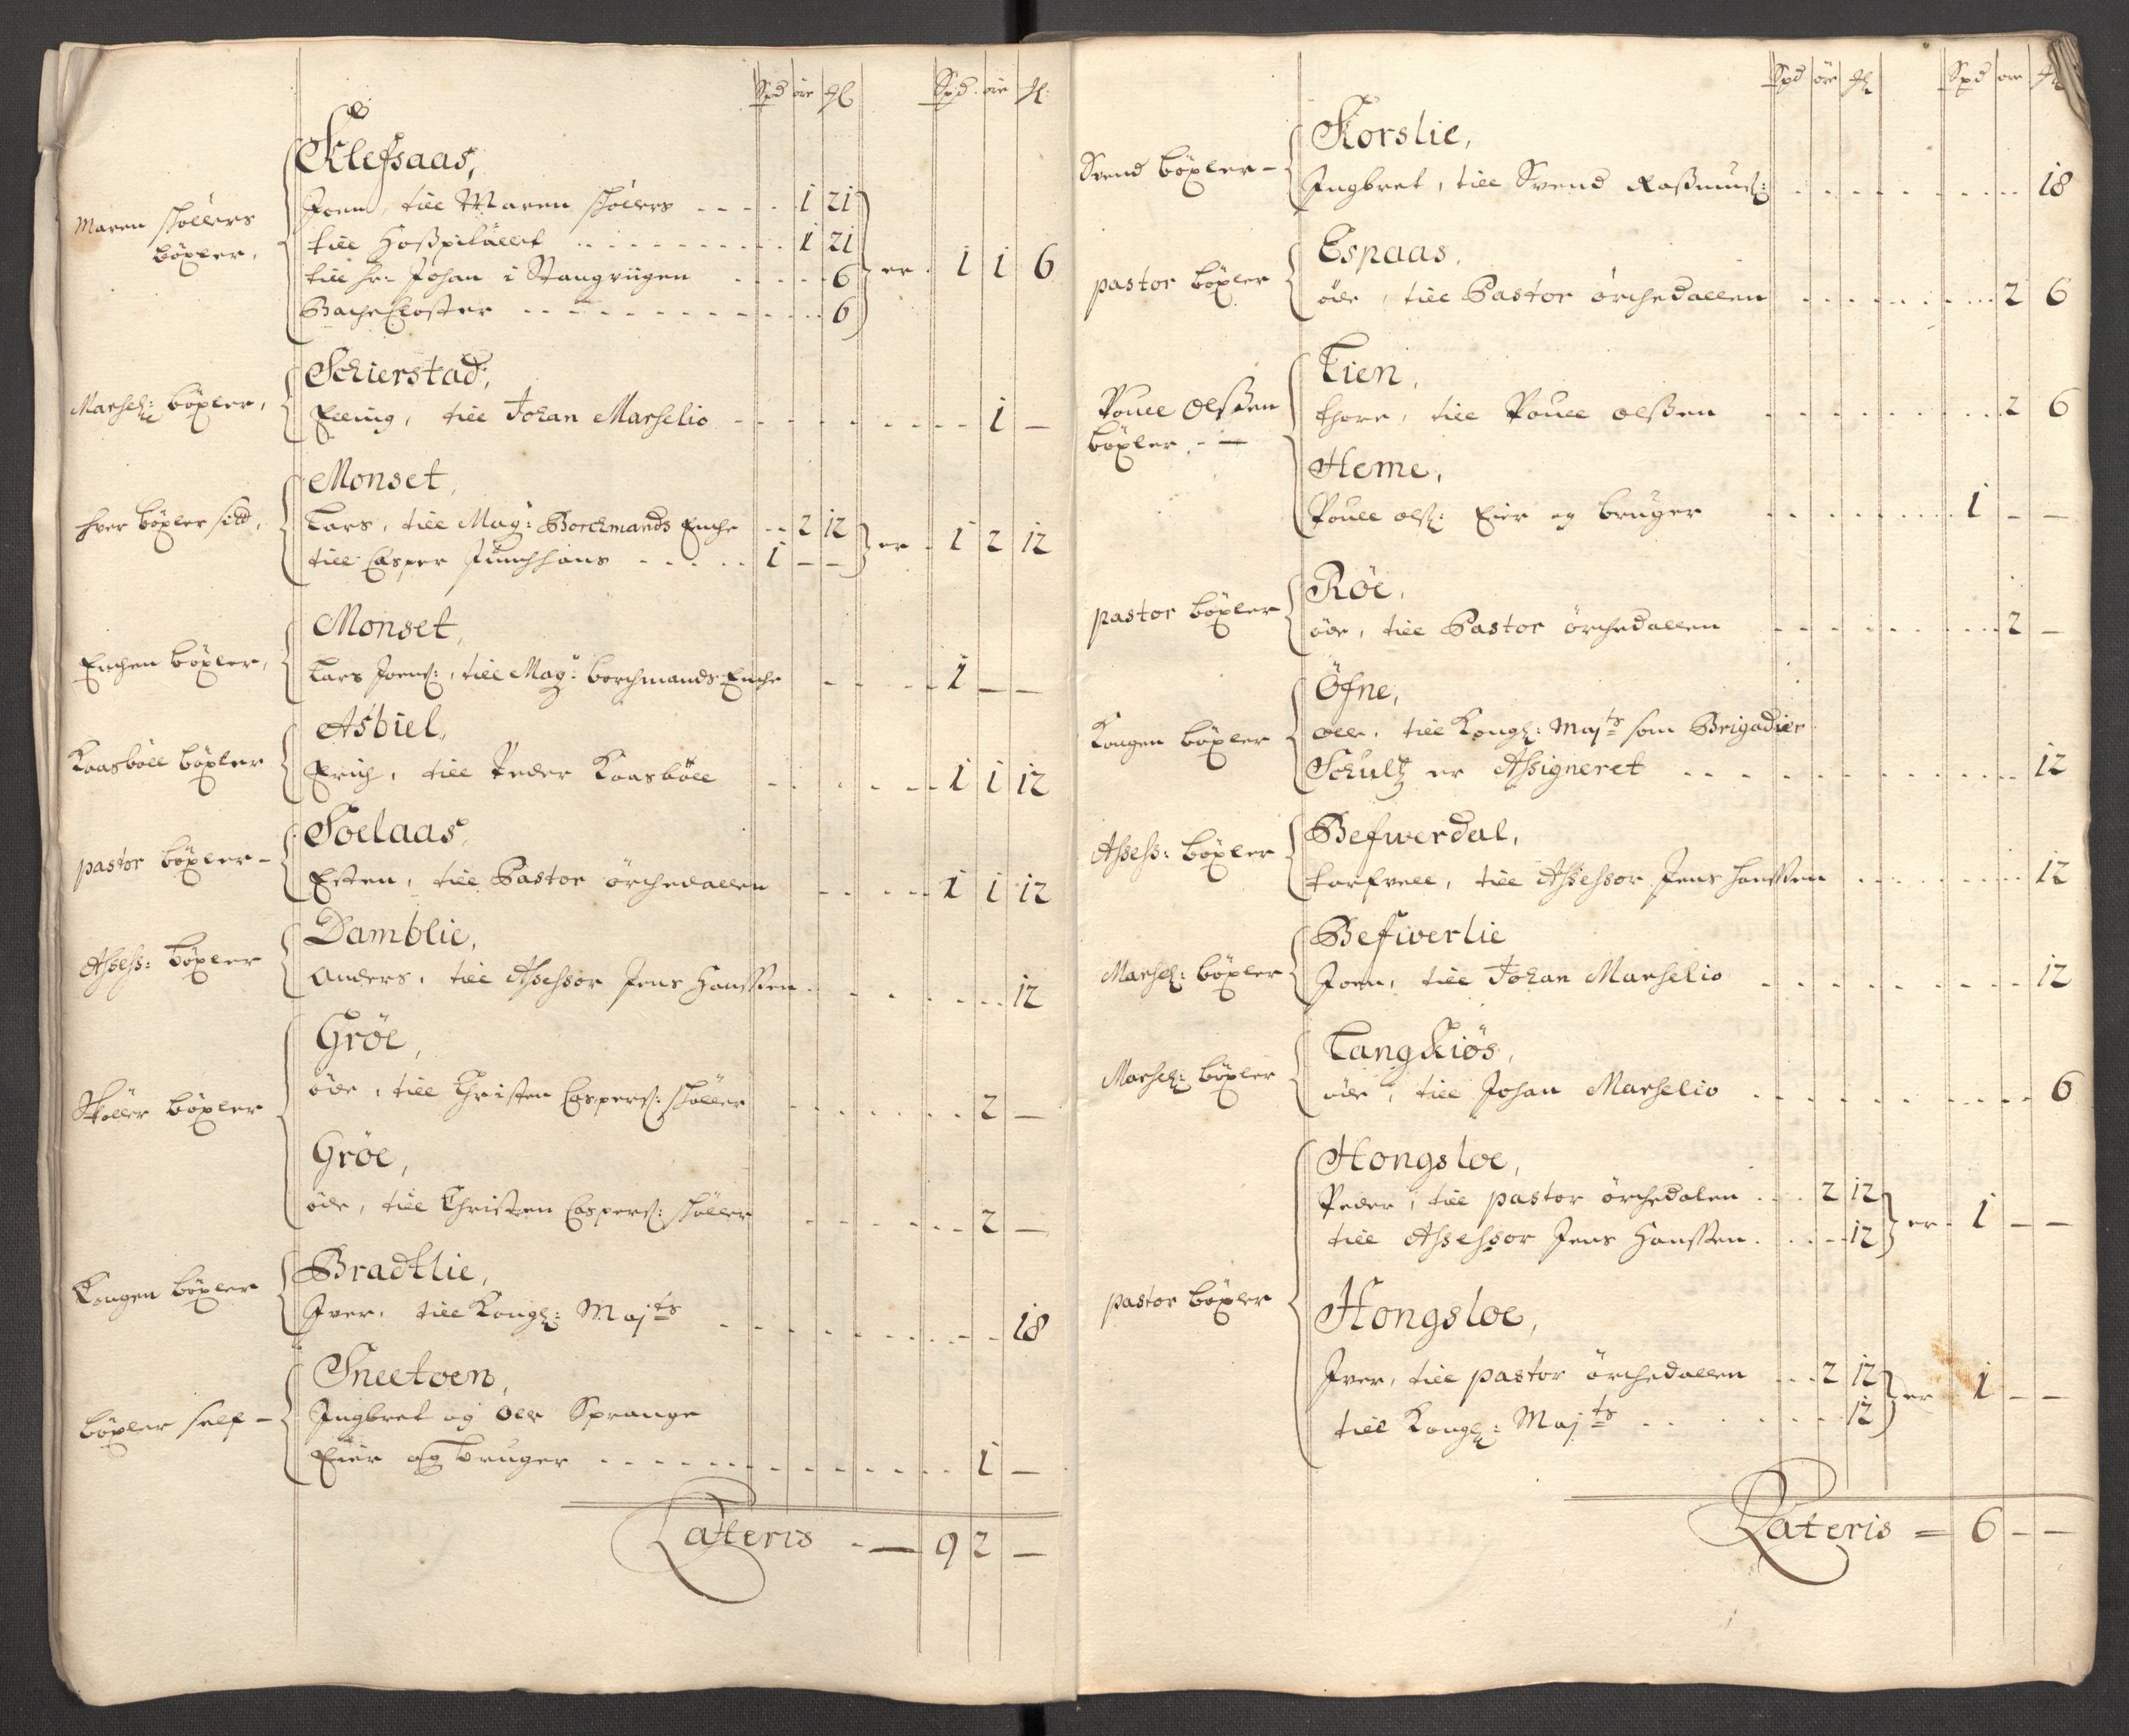 Spd øre ₰ Spd øre ₰
Klefsaas,
Maren Skøllers bøxler,
Joen, till Maren Skøllers - - - 1 21
till Hoßpitallet - - - 1 21
till Hr: Johan i Stangviigen - - - 6
Bache Closter - - - 6
er - 1 1 6
Schierstad,
Marsel: bøxler,
Elling, till Johan Marselio - - - 1 —
Monset,
Hver bøxler sitt,
Lars, till Mag: Borchmands Enche - - 2 12
till Casper Junchhans - - - 1 — —
er - 1 2 12
Monset,
Enchen bøxler,
Lars Joens:, till Mag: borchmands Enche - - - 1 — —
Asbiel,
Kaasbøll bøxler
Erich, till Peder Kaasbøll - - - 1 1 12
Soelaas,
pastor bøxler -
Esten, till Pastor ørchedallen - - - 1 1 12
Damblie,
Assess: bøxler
Anders, till Assessor Jens Hanssen - - - 12
Grøe,
Skøller bøxler
øde, till Christen Caspers: Skøller - - - 2 —
Grøe,
øde, till Christen Caspers: Skøller - - - 2 —
Bradtlie,
Kongen bøxler
Iver, till Kongl: Majts - - - 18
Sneetoen,
bøxler self -
Ingbret og Ole Sprange
Eier og bruger - - - 1 —
Lateris - — 9 2 —
Spd øre ₰ Spd øre ₰
Korslie,
Svend bøxler -
Ingbret, till Svend Raßmus: - - - 18
Espaas,
pastor bøxler
øde, till Pastor ørchedallen - - - 2 6
Lien,
Pouel Olßen bøxler, - —
Thore, till Pouel Olßen - - - 2 6
Heme,
Pouel Ols: Eier og bruger - - - 1 — —
Røe,
pastor bøxler
øde, till Pastor ørchedallen - - - 2 —
Øfne,
Kongen bøxler
Ole, till Kongl: Majts som Brigadier
Schultz er Assigneret - - - 12
Befwerdal,
Assess: bøxler
Torkell, till Assessor Jens Hanssen - - - 12
Befwerlie
Marsel: bøxler
Joen, till Johan Marselio - - - 12
Langkiøs,
Marsel: bøxler
øde, till Johan Marselio - - - 6
Hongsloe,
Peder, till pastor ørchedalen - - - 2 12
till Assessor Jens Hanssen - - - 12
er - 1 — —
pastor bøxler
Hongsloe,
Iver, till pastor ørchedallen - - - 2 12
till Kongl: Majts - - - 12
er - 1 — —
Lateris = 6 — —